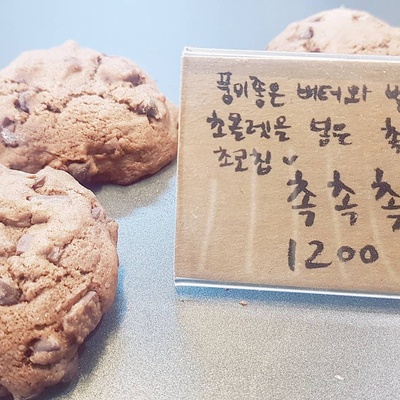 풍미좋은 버터와
초콜렛을 넣은 촉
초코칩
촉촉촉
1200